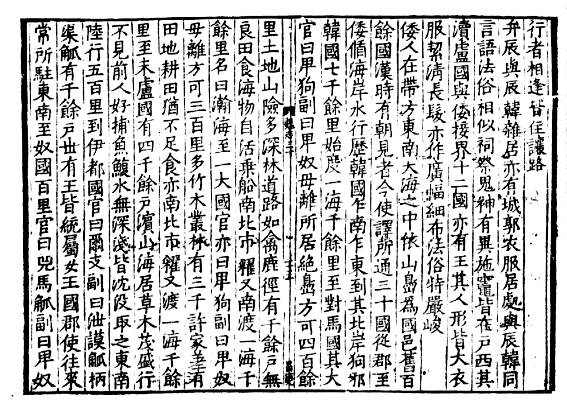 行者相逢皆住讓路
弁辰與辰韓雜居亦有城郭衣服居處與辰韓同
言語法俗相似祠祭鬼神有異施竈皆在戶西其
瀆盧國與倭接界十二國亦有王其人形皆大衣
服絜清長髮亦作廣幅細布法俗特嚴峻
倭人在帶方東南大海之中依山島為國邑舊百
餘國漢時有朝見者今使譯所通三十國從郡至
倭循海岸水行歷韓國乍南乍東到其北岸狗邪
韓國七千餘里始度一海千餘里至對馬國其大
官曰卑狗副曰卑奴毋離所居絶島方可四百餘
里土地山險多深林道路如禽鹿徑有千餘戶無
良田食海物自活乗船南北市糴又南渡一海千
餘里名曰瀚海至一大國官亦曰卑狗副曰卑奴
毋離方可三百里多竹木叢林有三千許家差有
田地耕田猶不足食亦南北市糴又渡一海千餘
里至末盧國有四千餘戶濱山海居草木茂盛行
不見前人好捕魚鰒水無深淺皆沈沒取之東南
陸行五百里到伊都國官曰爾支副曰泄謨觚柄
渠觚有千餘戶世有王皆統屬女王國郡使往來
常所駐東南至奴國百里官曰兕馬觚副曰卑奴